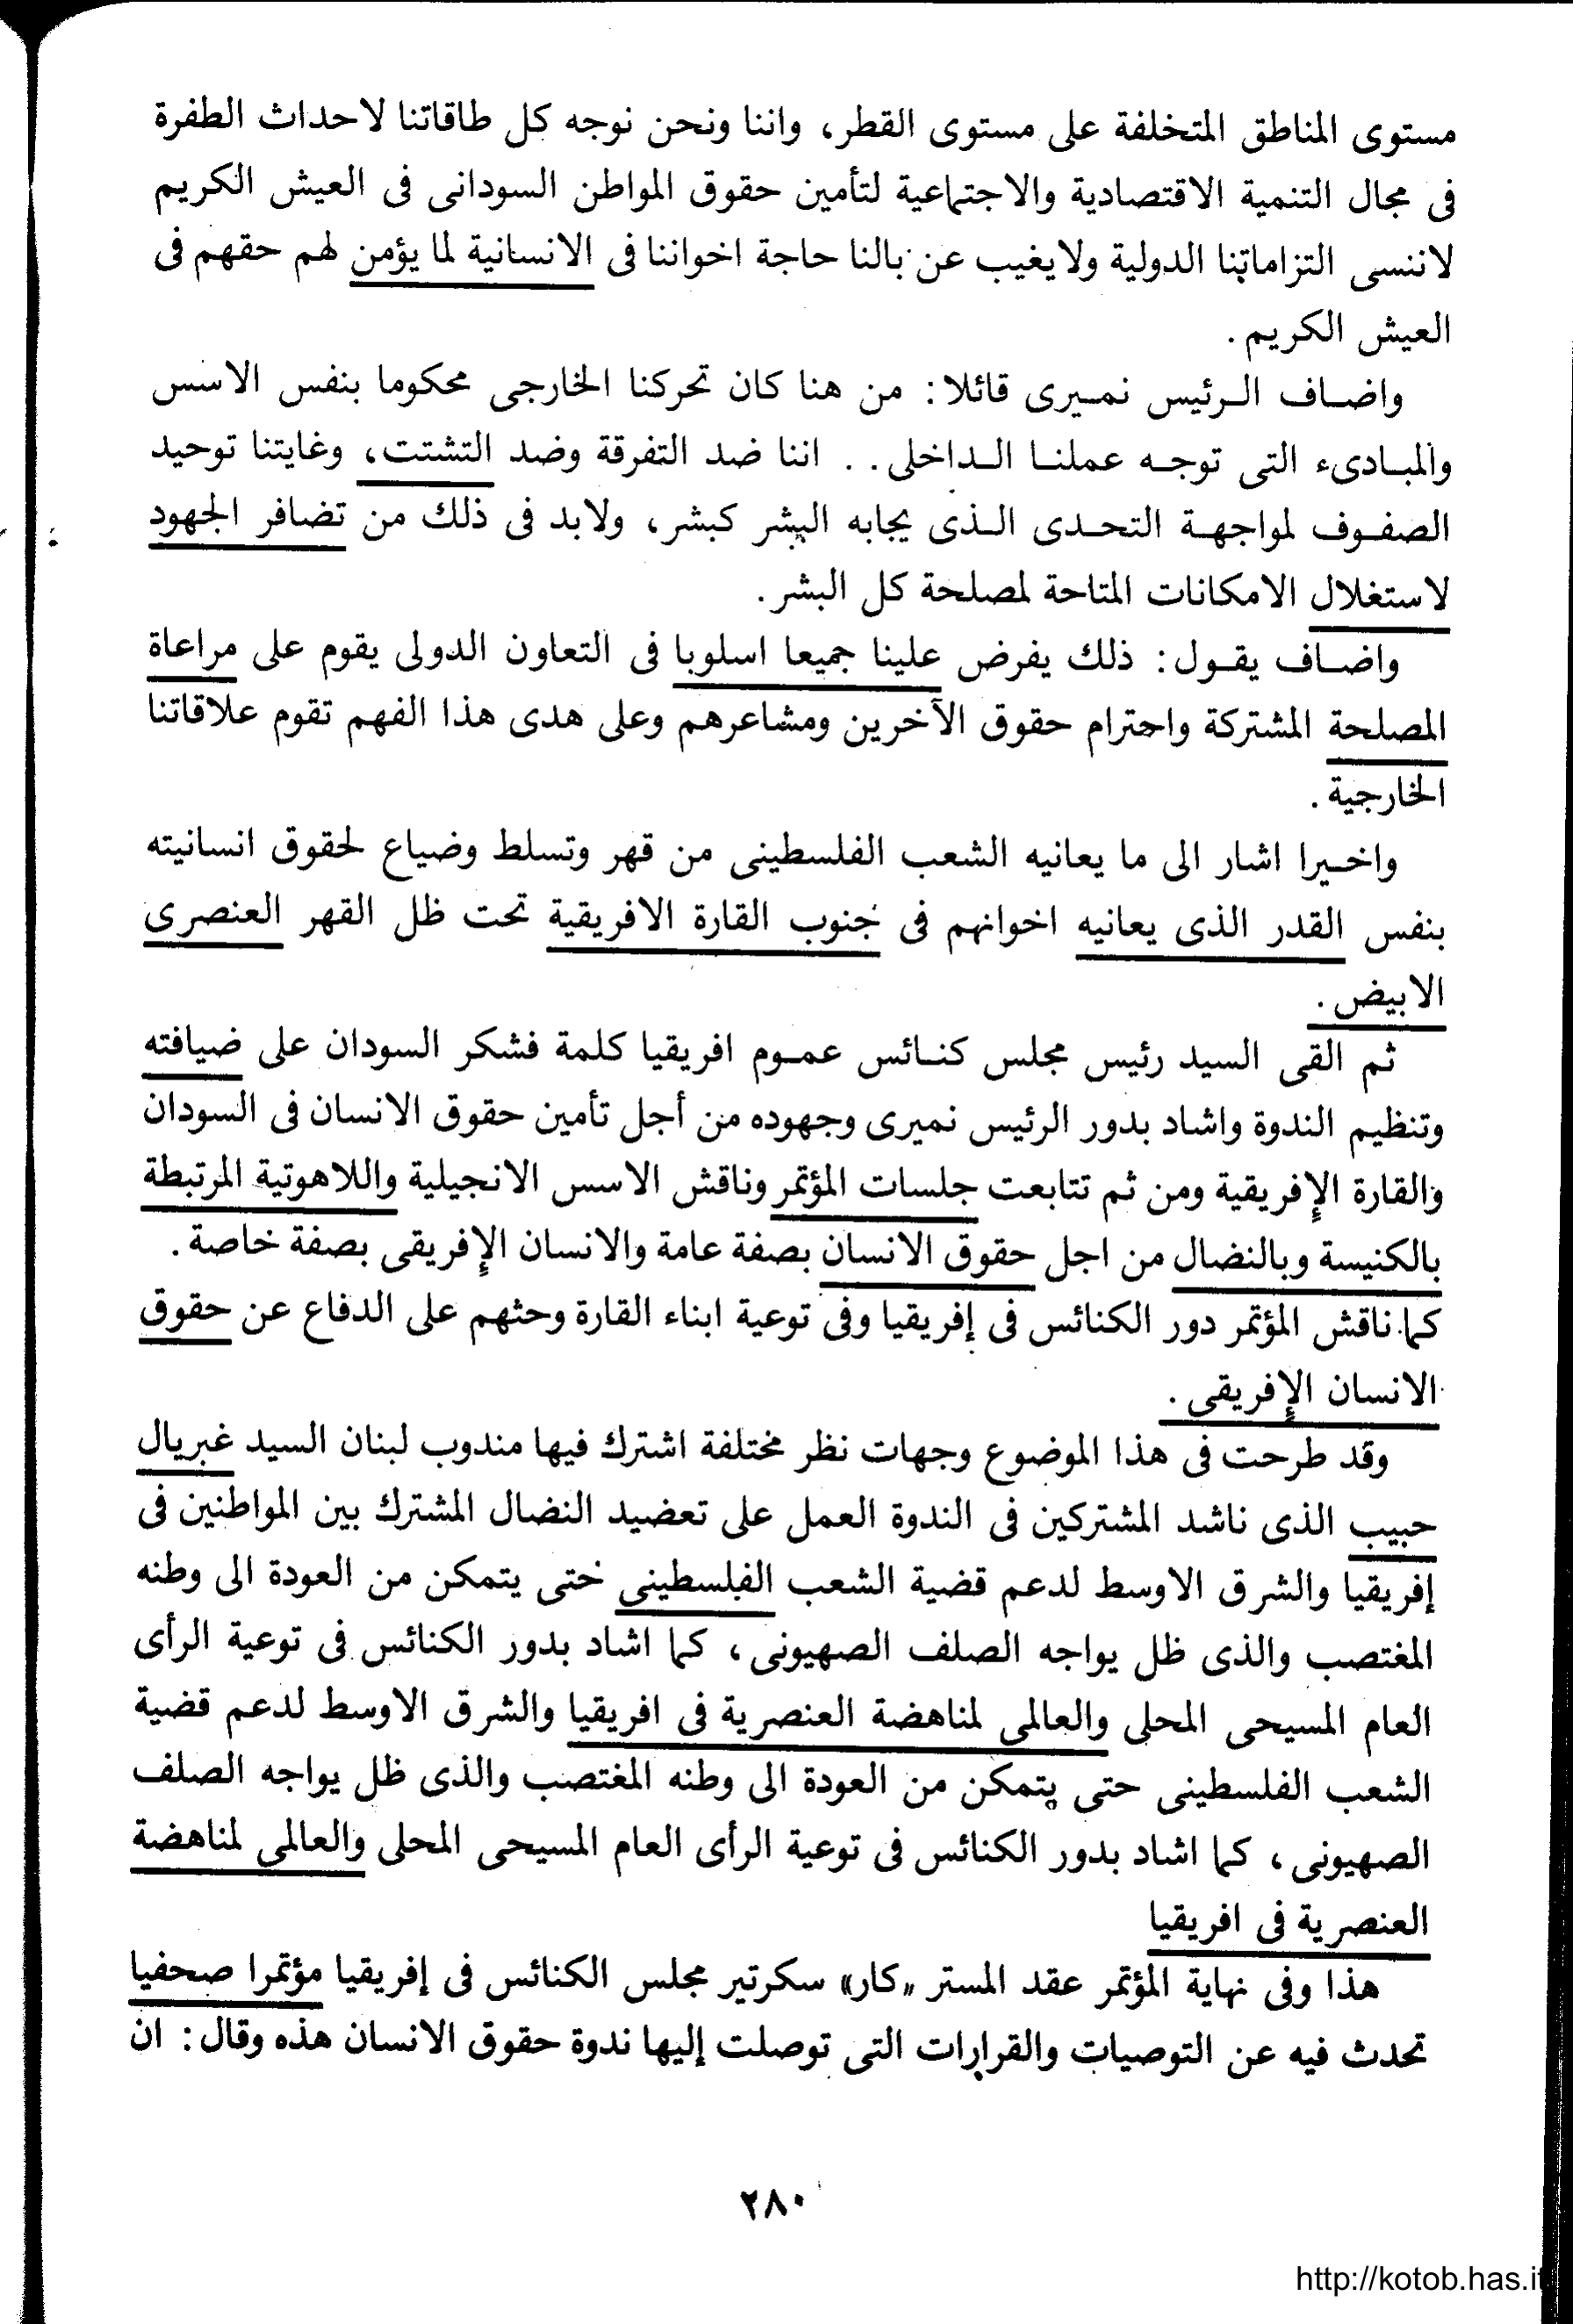 مستوى المناطق المتخلفة على مستوى القطر، واننا ونحن نوجه كل طاقاتنا لاحداث الطفرة
فى مجال التنمية الاقتصادية والاجتماعية لتأمين حقوق المواطن السودانى فى العيش الكريم
لاننسى التزاماتنا الدولية ولايغيب عن بالنا حاجة اخواننا فى الانسانية لما يؤمن لهم حقهم فى
العيش الكريم .
واضاف الرئيس نميرى قائلا: من هنا كان تحركنا الخارجى محكوما بنفس الاسس
والمبادىء التى توجه عملنا الداخلى . . اننا ضد التفرقة وضد التشتت، وغايتنا توحيد
الصفوف لمواجهة التحدى الذى يجابه البشر كبشر، ولابد فى ذلك من تضافر الجهود
لاستغلال الامكانات المتاحة لمصلحة كل البشر.
واضاف يقول: ذلك يفرض علينا جميعا اسلوبا فى التعاون الدولى يقوم على مراعاة
المصلحة المشتركة واحترام حقوق الآخرين ومشاعرهم وعلى هدى هذا الفهم تقوم علاقاتنا
الخارجية .
واخيرا اشار الى ما يعانيه الشعب الفلسطينى من قهر وتسلط وضياع لحقوق انسانيته
بنفس القدر الذى يعانيه اخوانهم فى جنوب القارة الافريقية تحت ظل القهر العنصرى
الابيض .
ثم القى السيد رئيس مجلس كنائس عموم افريقيا كلمة فشكر السودان على ضيافته
وتنظيم الندوة واشاد بدور الرئيس نميرى وجهوده من أجل تأمين حقوق الانسان فى السودان
والقارة الإفريقية ومن ثم تتابعت جلسات المؤتمر وناقش الاسس الانجيلية واللاهوتية المرتبطة
بالكنيسة وبالنضال من اجل حقوق الانسان بصفة عامة والانسان الإفريقى بصفة خاصة .
كما ناقش المؤتمر دور الكنائس فى إفريقيا وفى توعية ابناء القارة وحثهم على الدفاع عن حقوق
الانسان الإفريقى .
وقد طرحت فى هذا الموضوع وجهات نظر مختلفة اشترك فيها مندوب لبنان السيد غبريال
حبيب الذى ناشد المشتركين فى الندوة العمل على تعضيد النضال المشترك بين المواطنين فى
إفريقيا والشرق الاوسط لدعم قضية الشعب الفلسطينى حتى يتمكن من العودة الى وطنه
المغتصب والذى ظل يواجه الصلف الصهيونى، كما اشاد بدور الكنائس فى توعية الرأى
العام المسيحى المحلى والعالمى لمناهضة العنصرية فى افريقيا والشرق الاوسط لدعم قضية
الشعب الفلسطينى حتى يتمكن من العودة الى وطنه المغتصب والذى ظل يواجه الصلف
الصهيونى، كما اشاد بدور الكنائس فى توعية الرأى العام المسيحى المحلى والعالمى لمناهضة
العنصرية فى افريقيا
هذا وفى نهاية المؤتمر عقد المستر «كار» سكرتير مجلس الكنائس فى إفريقيا مؤتمرا صحفيا
تحدث فيه عن التوصيات والقرارات التى توصلت إليها ندوة حقوق الانسان هذه وقال: ان
٢٨٠
http://kotob.has.it